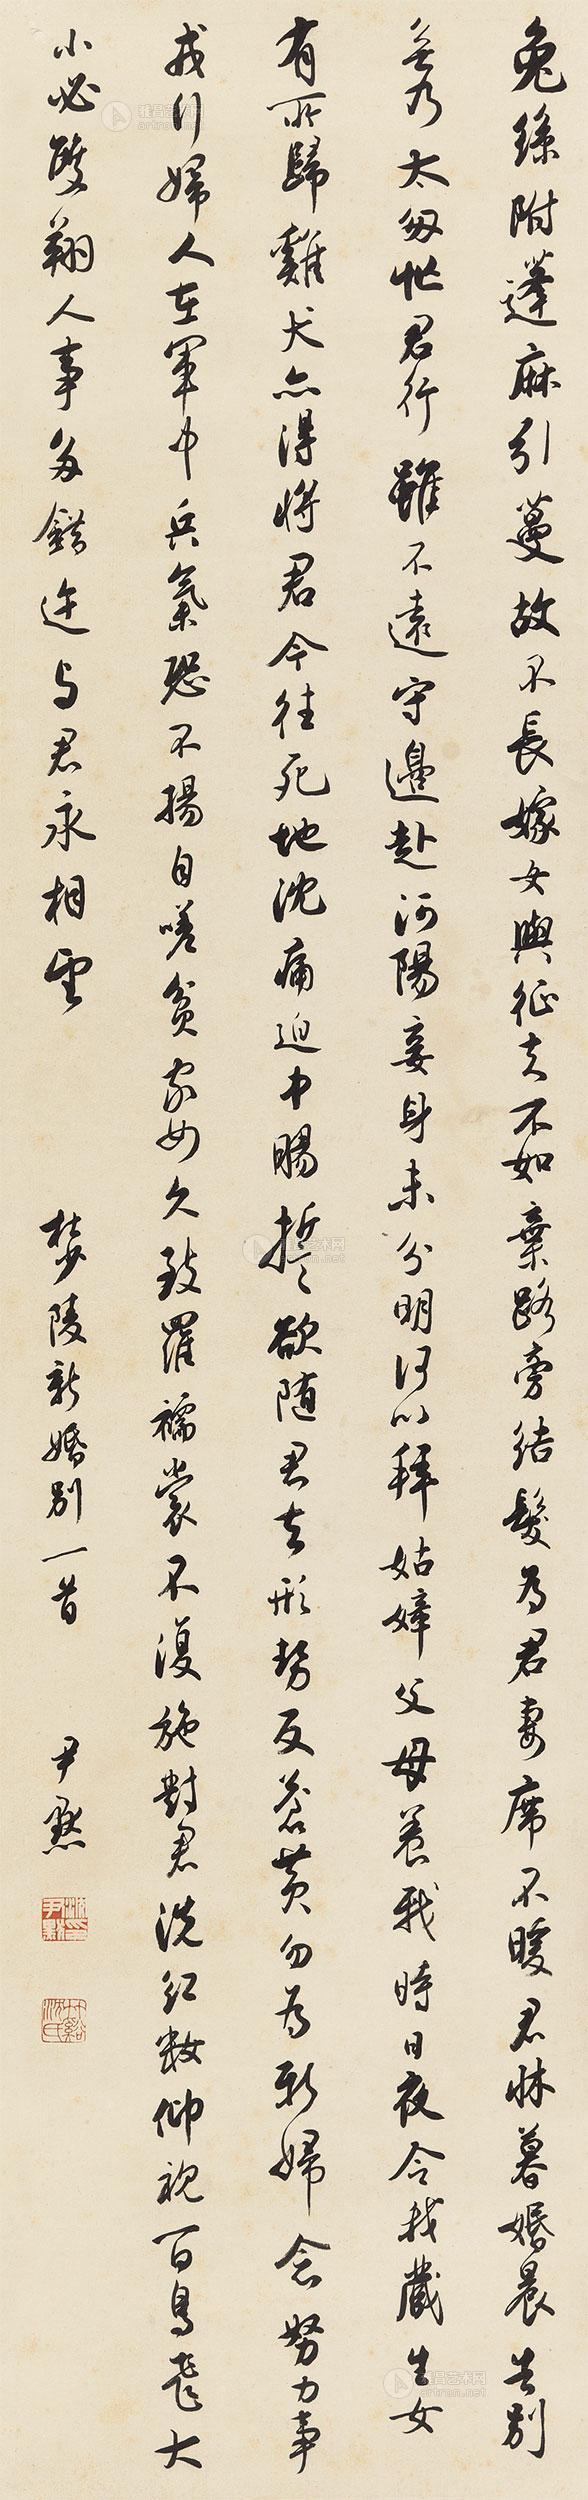 兔絲附蓬麻引蔓故不長嫁女與征夫不如棄路旁結髮為君妻席不暖君牀暮婚晨告別
無乃太匆忙君行雖不遠守邊赴河陽妾身未分明何以拜姑嫜父母養我時日夜令我藏生女
有所歸雞犬亦得將君今往死地沈痛迫中腸誓欲隨君去形勢反蒼黃勿為新婦念努力事
戎行婦人在軍中兵氣恐不揚自嗟貧家女久致羅襦裳不復施對君洗紅妝仰視百鳥飛大
小必雙翔人事多錯迕与君永相望
杜少陵新婚別一首
尹默
沈尹默
竹谿沈氏
雅昌艺术网
artron.net
雅昌艺术网
artron.net
雅昌艺术网
artron.net